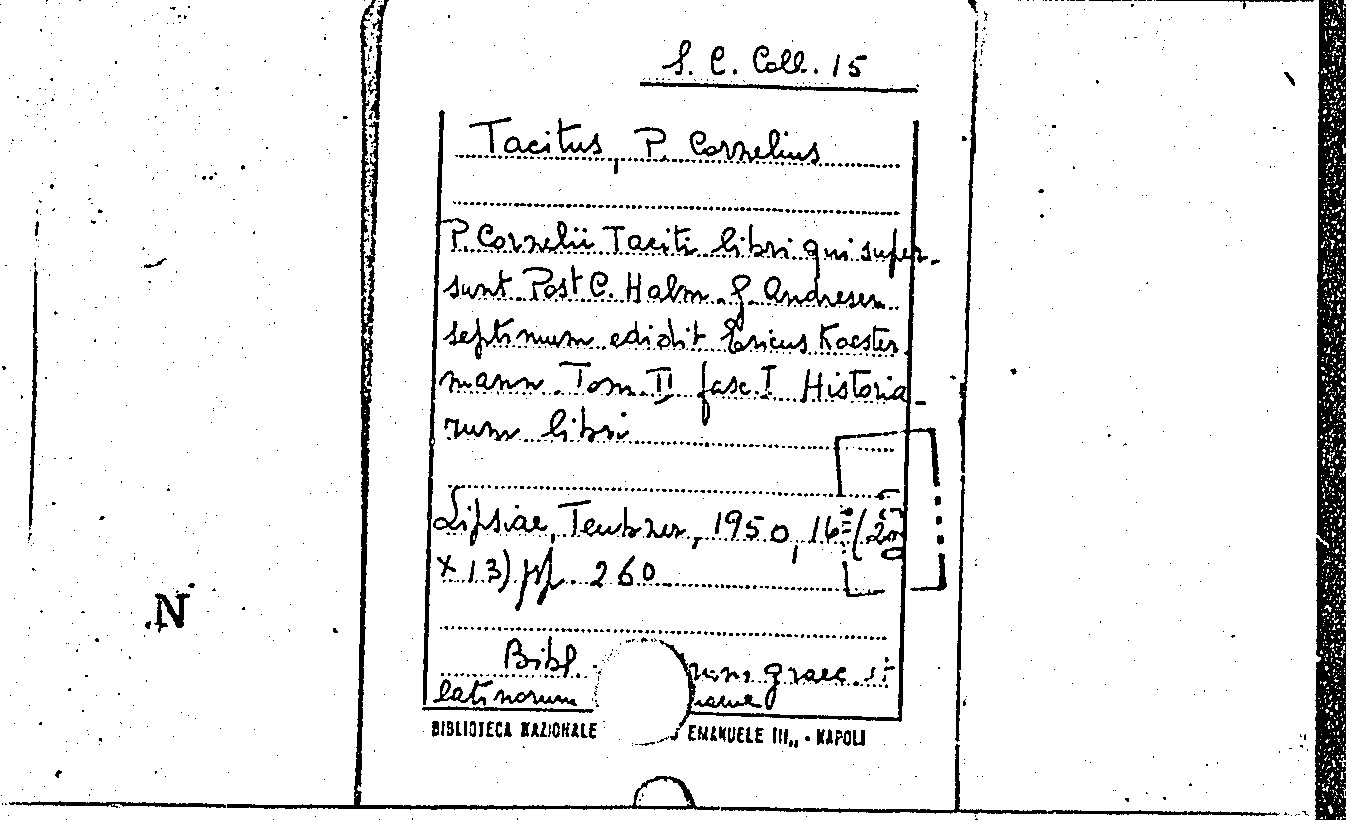 S. C. Coll. 15
Tacitus, P. Cornelius
P. Cornelii Taciti libri qui super-
sunt Post C. Halm. G. Andresen
septimum edidit Ericus Koester
mann. Tom. II fasc. I Historia-
rum libri
Lipsiae, Teubner, 1950, 16°
x 13) pp. 260
Bibl. graec. et
latinorum
BIBLIOTECA NAZIONALE EMANUELE III„ - NAPOLI
N